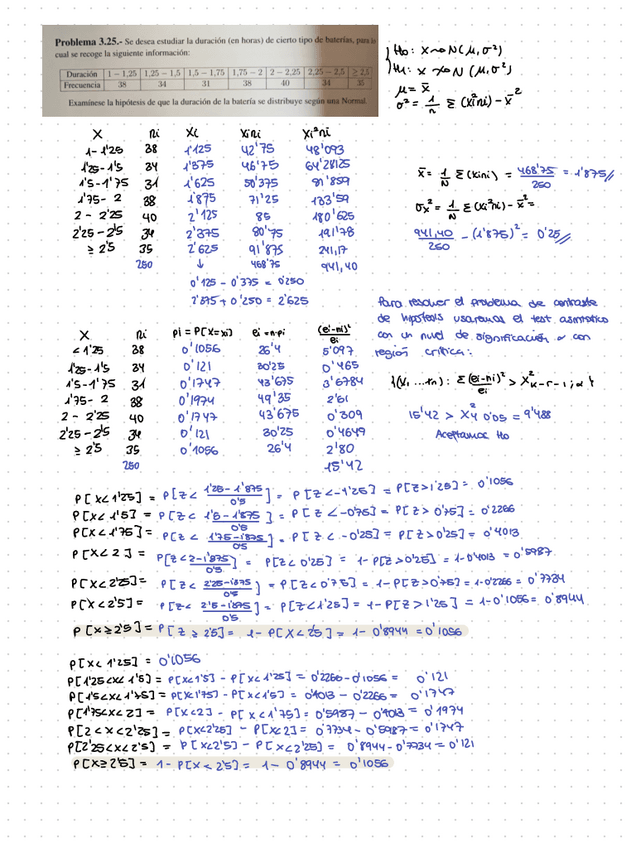 Problema 3.25.- Se desea estudiar la duración (en horas) de cierto tipo de baterías, para lo
cual se recoge la siguiente información:
Duración 1 – 1,25 1,25 – 1,5 1,5 – 1,75 1,75 – 2 2 – 2,25 2,25 – 2,5 ≥ 2,5
Frecuencia 38 34 31 38 40 34 35
Examínese la hipótesis de que la duración de la batería se distribuye según una Normal.
H0: X ~ N(μ, σ²)
H1: X ≁ N(μ, σ²)
μ = x̄
σ² = 1/n Σ(xi²ni) - x̄²
X ni xi xini xi²ni
1-1'25 38 1'125 42'75 48'093
1'25-1'5 34 1'375 46'75 64'28125
1'5-1'75 31 1'625 50'375 81'859
1'75-2 38 1'875 71'25 133'59
2-2'25 40 2'125 85 180'625
2'25-2'5 34 2'375 80'75 191'78
≥2'5 35 2'625 91'875 241,17
250 ↓ 468'75 941,40
0'125 - 0'375 = 0'250
2'375 + 0'250 = 2'625
x̄ = 1/N Σ(xini) = 468'75/250 = 1'875//
σx² = 1/N Σ(xi²ni) - x̄² =
941,40/250 - (1'875)² = 0'25//
Para resolver el problema de contraste
de hipótesis usaremos el test asintótico
con un nivel de significación α con
región crítica:
{(x1,...xn): Σ(ei-ni)²/ei > X²k-r-1;α}
15'42 > X²4 0'05 = 9'488
Aceptamos H0
X ni pi = P[X=xi] ei = n·pi (ei-ni)²/ei
<1'25 38 0'1056 26'4 5'097
1'25-1'5 34 0'121 30'25 0'465
1'5-1'75 31 0'1747 43'675 3'6784
1'75-2 38 0'1974 49'35 2'61
2-2'25 40 0'1747 43'675 0'309
2'25-2'5 34 0'121 30'25 0'4649
≥2'5 35 0'1056 26'4 2'80
250 15'42
P[X<1'25] = P[Z< 1'25-1'875/0'5] = P[Z<-1'25] = P[Z>1'25] = 0'1056
P[X<1'5] = P[Z< 1'5-1'875/0'5] = P[Z<-0'75] = P[Z>0'75] = 0'2266
P[X<1'75] = P[Z< 1'75-1'875/0'5] = P[Z<-0'25] = P[Z>0'25] = 0'4013
P[X<2] = P[Z< 2-1'875/0'5] = P[Z<0'25] = 1-P[Z>0'25] = 1-0'4013 = 0'5987
P[X<2'25] = P[Z< 2'25-1'875/0'5] = P[Z<0'75] = 1-P[Z>0'75] = 1-0'2266 = 0'7734
P[X<2'5] = P[Z< 2'5-1'875/0'5] = P[Z<1'25] = 1-P[Z>1'25] = 1-0'1056 = 0'8944
P[X≥2'5] = P[Z≥2'5] = 1-P[X<2'5] = 1-0'8944 = 0'1056
P[X<1'25] = 0'1056
P[1'25<X<1'5] = P[X<1'5] - P[X<1'25] = 0'2266-0'1056 = 0'121
P[1'5<X<1'75] = P[X<1'75] - P[X<1'5] = 0'4013 - 0'2266 = 0'1747
P[1'75<X<2] = P[X<2] - P[X<1'75] = 0'5987 - 0'4013 = 0'1974
P[2<X<2'25] = P[X<2'25] - P[X<2] = 0'7734 - 0'5987 = 0'1747
P[2'25<X<2'5] = P[X<2'5] - P[X<2'25] = 0'8944-0'7734 = 0'121
P[X≥2'5] = 1-P[X<2'5] = 1-0'8944 = 0'1056